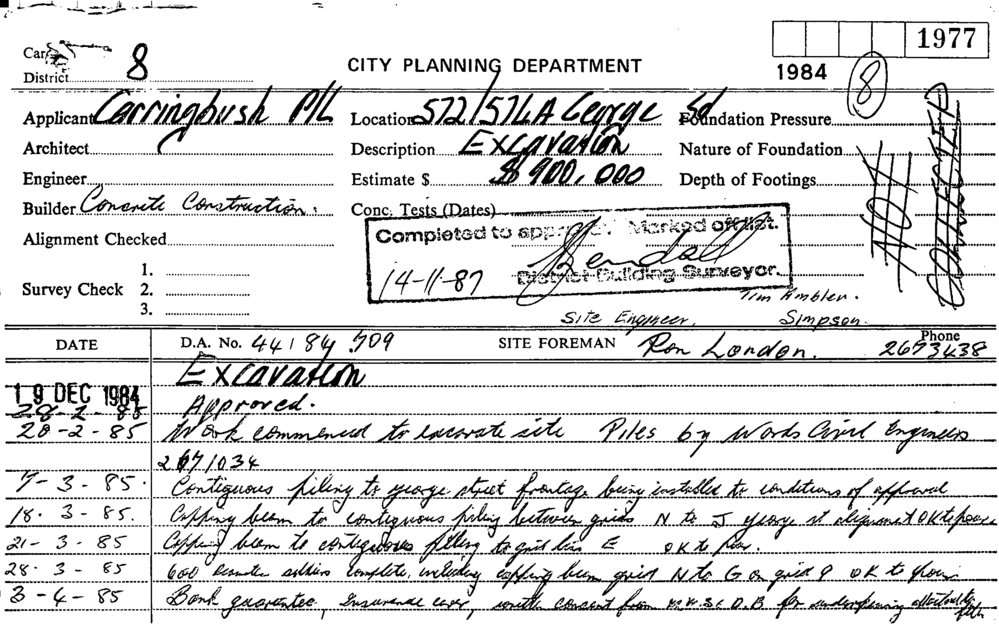 1977
Card 8
District
CITY PLANNING DEPARTMENT
1984
8
Applicant Carringbush P/L Location 572/574A George Sd Foundation Pressure
Architect Description Excavation Nature of Foundation
Engineer Estimate $ $ 900,000 Depth of Footings
Builder Concrete Construction. Conc. Tests (Dates)
NOT
CONNECTED
Alignment Checked
Completed to Marked off list.
14-11-87 District Building Surveyor.
1.
Survey Check 2.
3.
Tim Ambler.
Site Engineer. Simpson.
DATE D.A. No. 44/84/509 SITE FOREMAN Ron London. Phone 2673438
Excavation
19 DEC 1984
28-2-85 Approved.
28-2-85 Work commenced to excavate site Piles by Words Civil Engineers
2671034
7-3-85. Contiguous piling to george street frontage being installed to conditions of approval
18.3-85. Capping beam to contiguous piling between grids N to J george st alignment OK to pour.
21-3-85 Capping beam to contiguous piling to grid line E OK to pour.
28-3-85 600 diameter complete, including capping beam grid N to G on grid 9 OK to pour
3-4-85 Bank guarantee, Insurance cover, consent from M.W.S & D.B. for underpinning